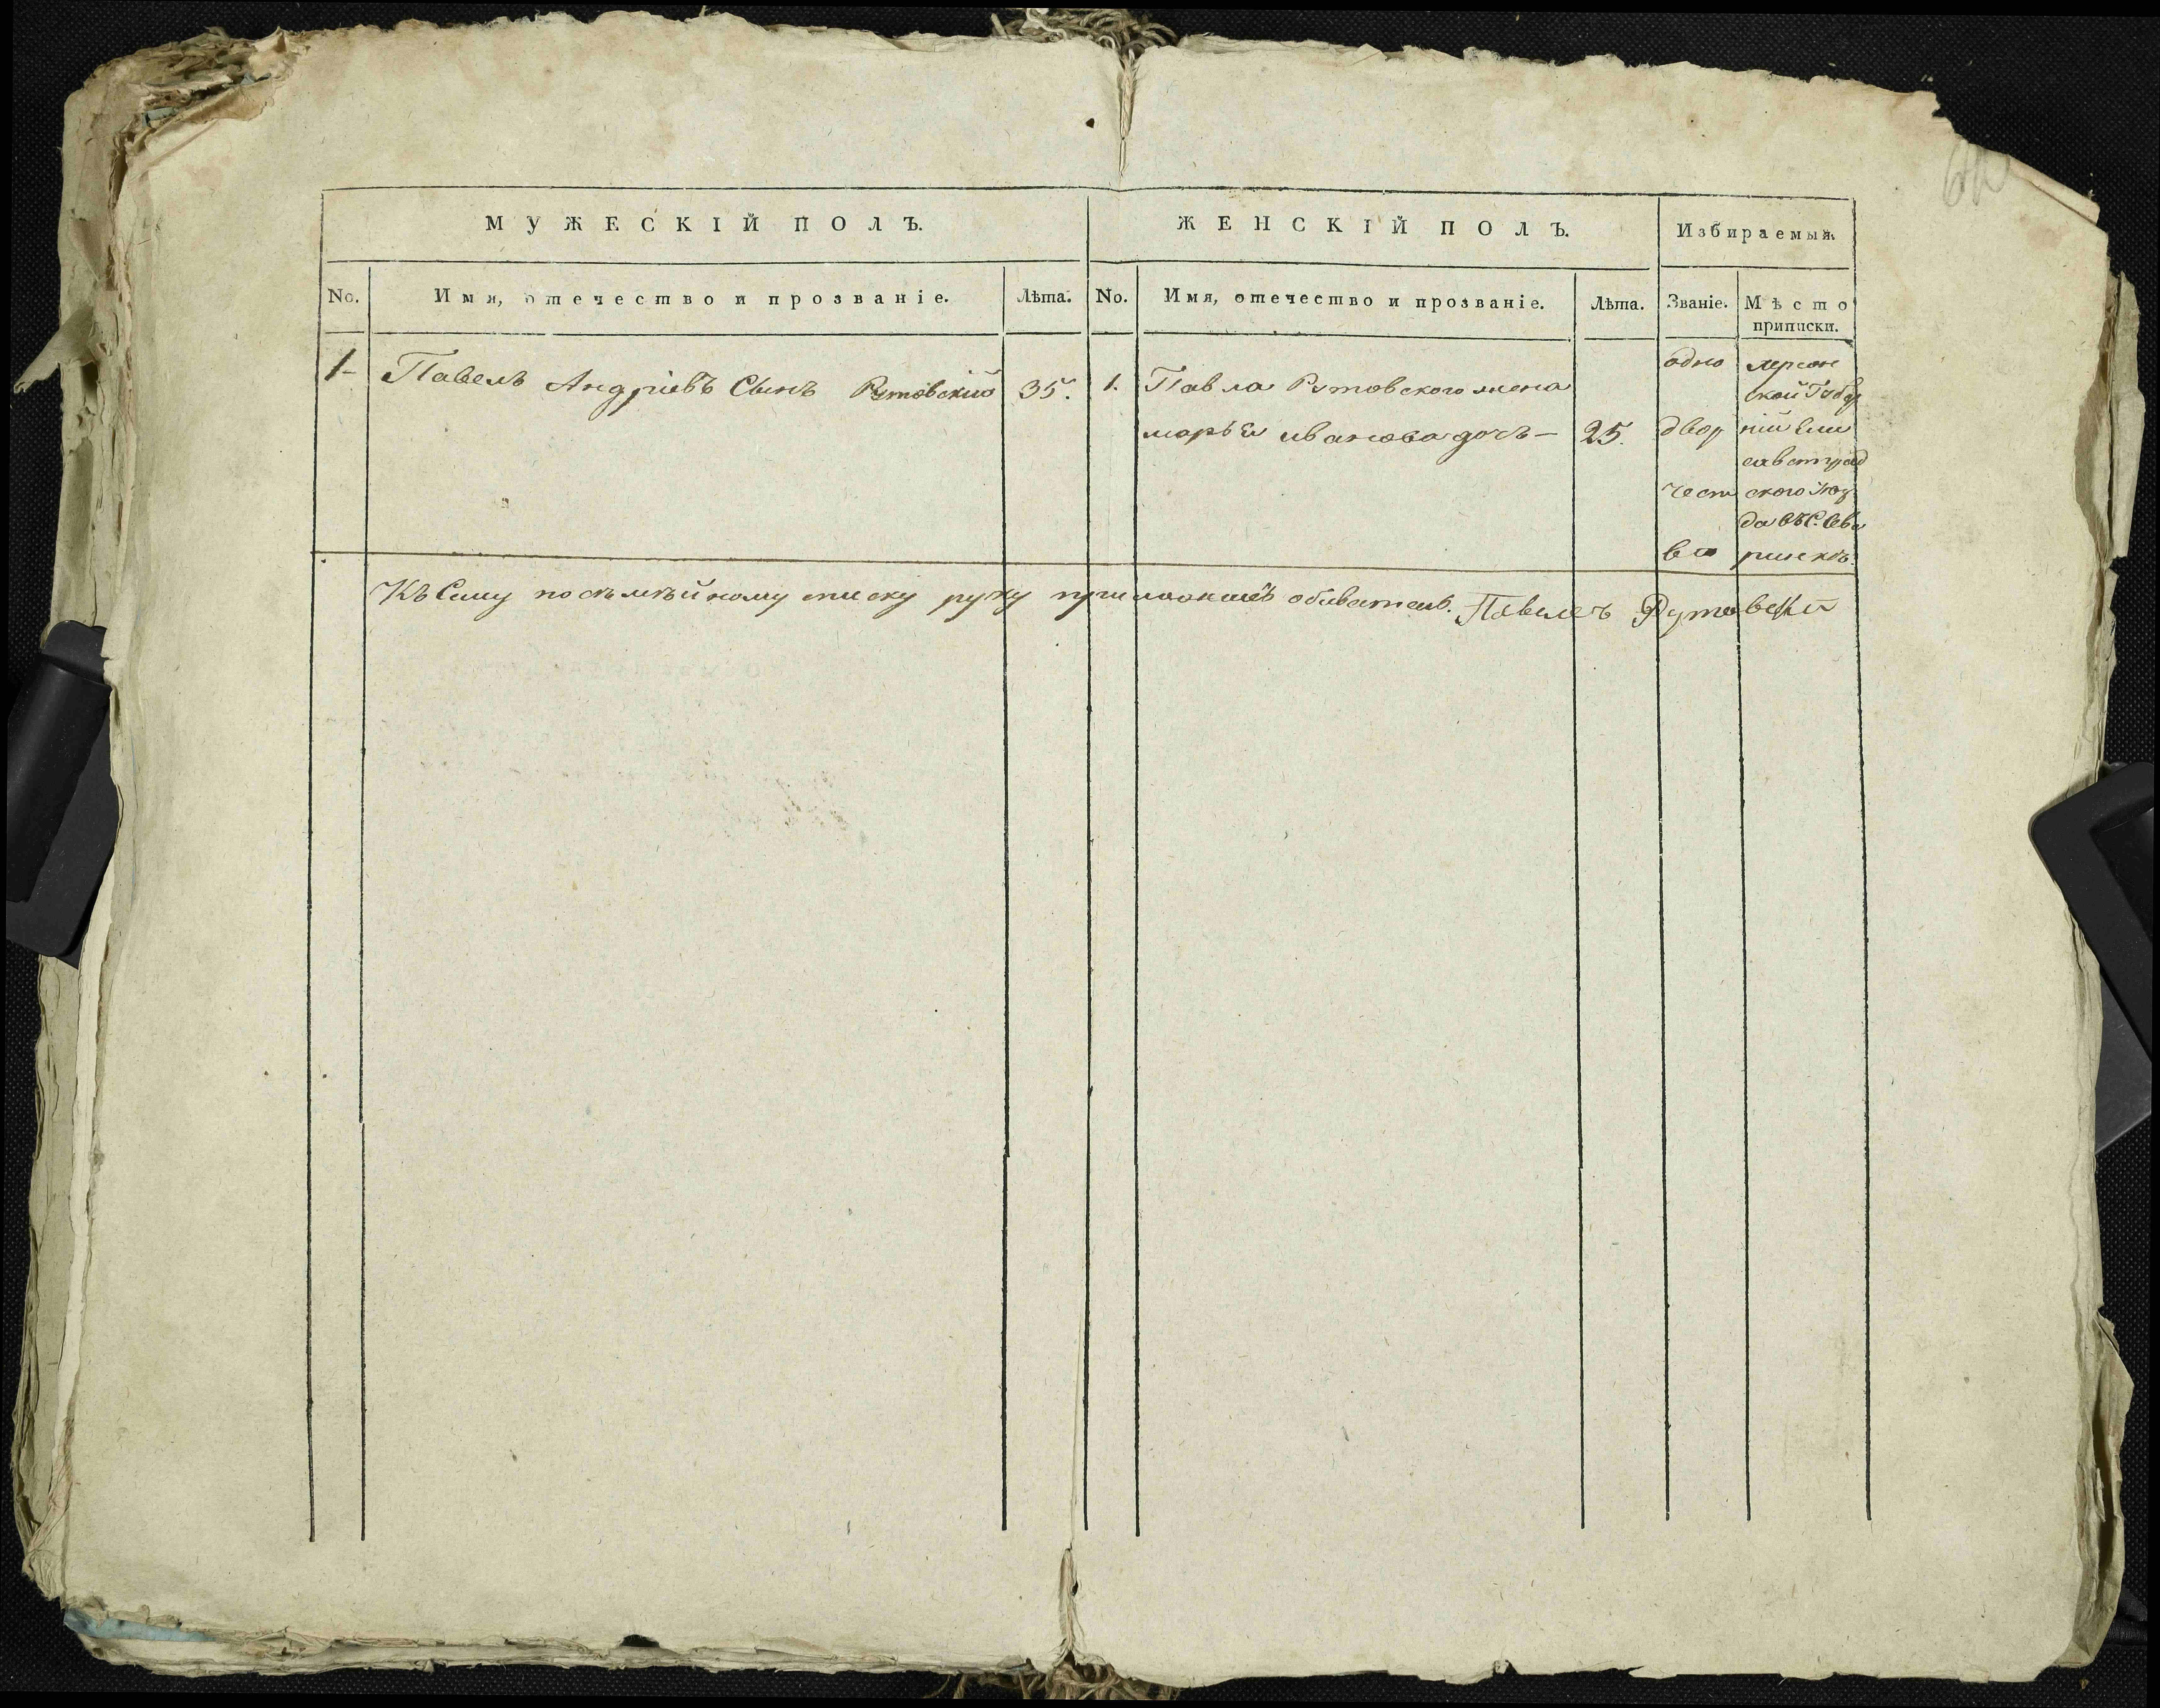 МУЖЕСКІЙ ПОЛЪ.
ЖЕНСКІЙ ПОЛЪ.
Избираемыя.
No.
Имя, отечество и прозваніе.
Лѣта.
No.
Имя, отечество и прозваніе.
Лѣта.
Званіе.
Мѣсто
приписки.
1
Павелъ Андріевъ Сынъ Рутовскій
35.
1.
Павла Рутовского жена
марья иванова дочь —
25.
одно
двор
чест
во
херсон
ской Губер
ніи Ели
саветград
ского уюз
да въ С.
Къ Сему посѣмѣйному списку руку приложилъ обиватель. Павелъ Рутовскій